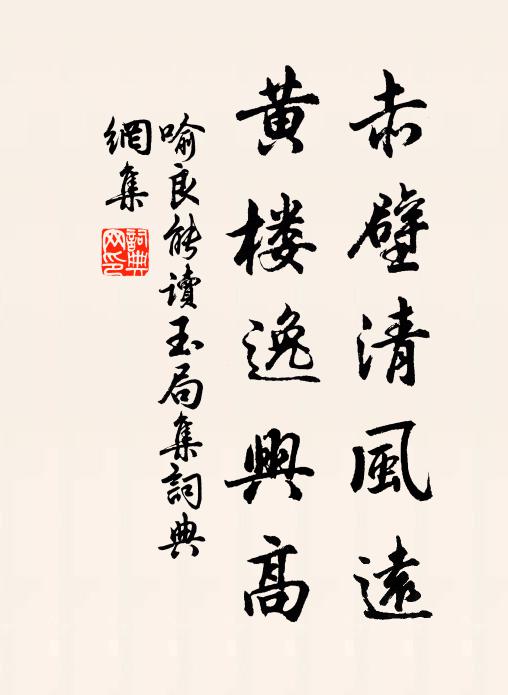 赤壁清風遠
黄楼逸興高
喻良能讀玉局集詞典
網集
詞典
网印